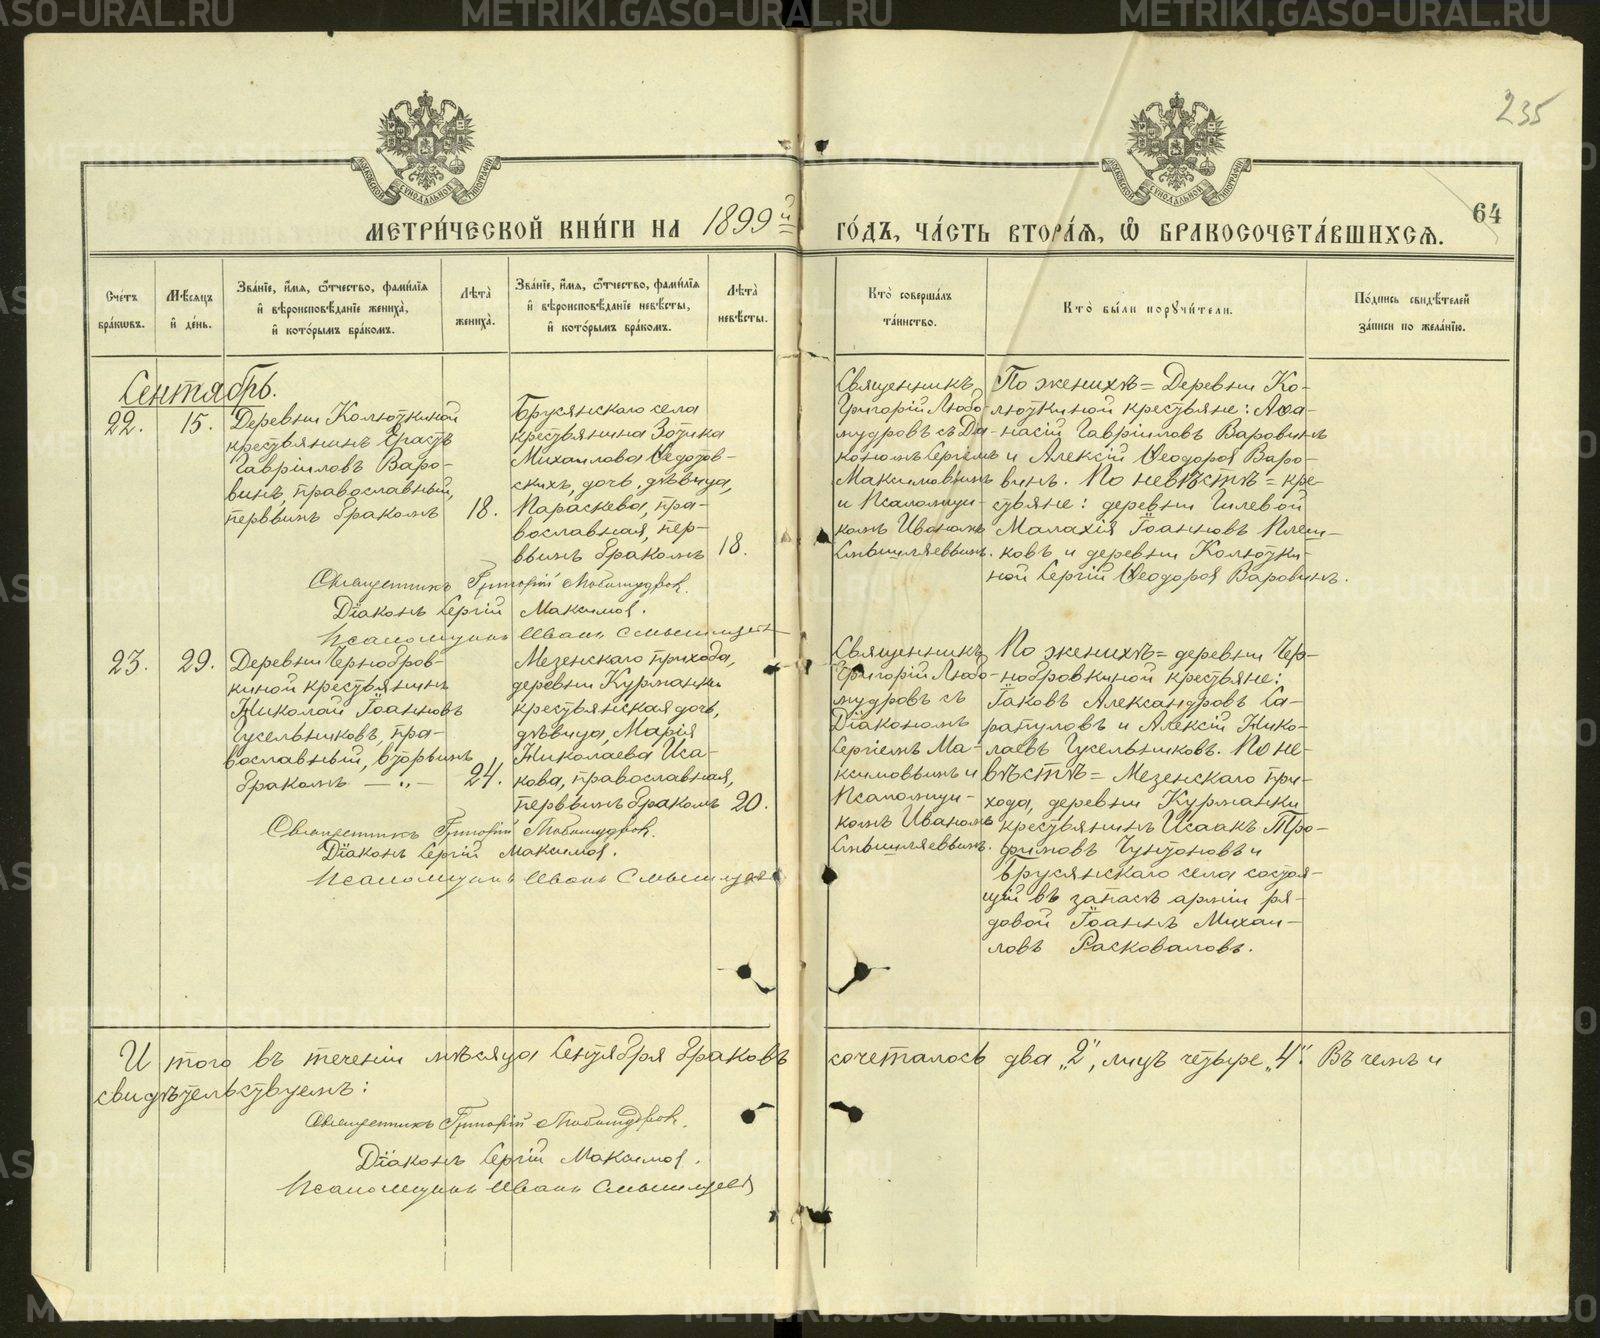 235
МОСКОВСКОЙ СѴНОДАЛЬНОЙ ТИПОГРАФІИ
МОСКОВСКОЙ СѴНОДАЛЬНОЙ ТИПОГРАФІИ
64
МЕТРИ́ЧЕСКОЙ КНИ́ГИ НА 1899й ГО́ДЪ, ЧА́СТЬ ВТОРА́Я, Ѽ БРАКОСОЧЕТА́ВШИХСЯ.
Сче́тъ
бра́кѡвъ.
Мѣ́сяцъ
и҆ де́нь.
Зва́нїе, и҆́мя, ѻ҆́тчество, фами́лїя
и҆ вѣроисповѣ́данїе жениха̀,
и҆ кото́рымъ бра́комъ.
Лѣ́та̀
жениха̀.
Зва́нїе, и҆́мя, ѻ҆́тчество, фами́лїя
и҆ вѣроисповѣ́данїе невѣ́сты,
и҆ кото́рымъ бра́комъ.
Лѣ́та̀
невѣ́сты.
Кто̀ соверша́лъ
та́инство.
Кто̀ бы́ли порꙋчи́тели.
По́дпись свидѣ́телей
за́писи по жела́нїю.
Сентябрь.
22.
15.
Деревни Колюткиной
крестьянинъ Ерастъ
Гавріиловъ Варо-
винъ, православный,
первымъ бракомъ
18.
Брусянскаго села
крестьянина Зотика
Михаилова Ѳедотов-
скихъ, дочь, дѣвица,
Параскева, пра-
вославная, пер-
вымъ бракомъ
18.
Священникъ
Григорій Любо-
мудровъ съ Діа-
кономъ Сергіемъ
Максимовымъ
и Псаломщи-
комъ Иваномъ
Смышляевымъ.
По женихѣ = Деревни Ко-
люткиной крестьяне: Аѳа-
насій Гавріиловъ Варовинъ
и Алексій Ѳеодоровъ Варо-
винъ. По невѣстѣ = кре-
стьяне: деревни Гилевой
Малахія Іоанновъ Плеш-
ковъ и деревни Колютки-
ной Сергій Ѳеодоровъ Варовинъ.
Священникъ Григорій Любомудровъ.
Діаконъ Сергій Максимовъ.
Псаломщикъ Иванъ Смышляевъ
23.
29.
Деревни Чернобров-
киной крестьянинъ
Николай Іоанновъ
Гусельниковъ, пра-
вославный, вторымъ
бракомъ — „ —
24.
Мезенскаго прихода,
деревни Курманки
крестьянская дочь,
дѣвица, Марія
Николаева Иса-
кова, православная,
первымъ бракомъ
20.
Священникъ
Григорій Любо-
мудровъ съ
Діакономъ
Сергіемъ Ма-
ксимовымъ и
Псаломщи-
комъ Иваномъ
Смышляевымъ.
По женихѣ = деревни Чер-
нобровкиной крестьяне:
Іаковъ Александровъ Са-
рапуловъ и Алексій Нико-
лаевъ Гусельниковъ. По не-
вѣстѣ = Мезенскаго при-
хода, деревни Курманки
крестьянинъ Исаакъ Тро-
фимовъ и
Брусянскаго села состоя-
щій въ запасѣ арміи ря-
довой Іоаннъ Михаи-
ловъ Расковаловъ.
Священникъ Григорій Любомудровъ.
Діаконъ Сергій Максимовъ.
Псаломщикъ Иванъ Смышляевъ
И того въ теченіи мѣсяца Сентября браковъ сочеталось два „2”, лицъ четыре „4”. Въ чемъ и
свидѣтельствуемъ:
Священникъ Григорій Любомудровъ.
Діаконъ Сергій Максимовъ.
Псаломщикъ Иванъ Смышляевъ
METRIKI.GASO-URAL.RU